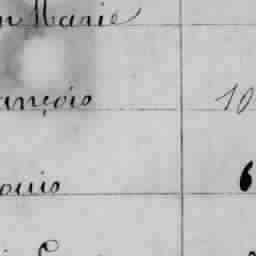 n Marie
ançois 10
ouis 6